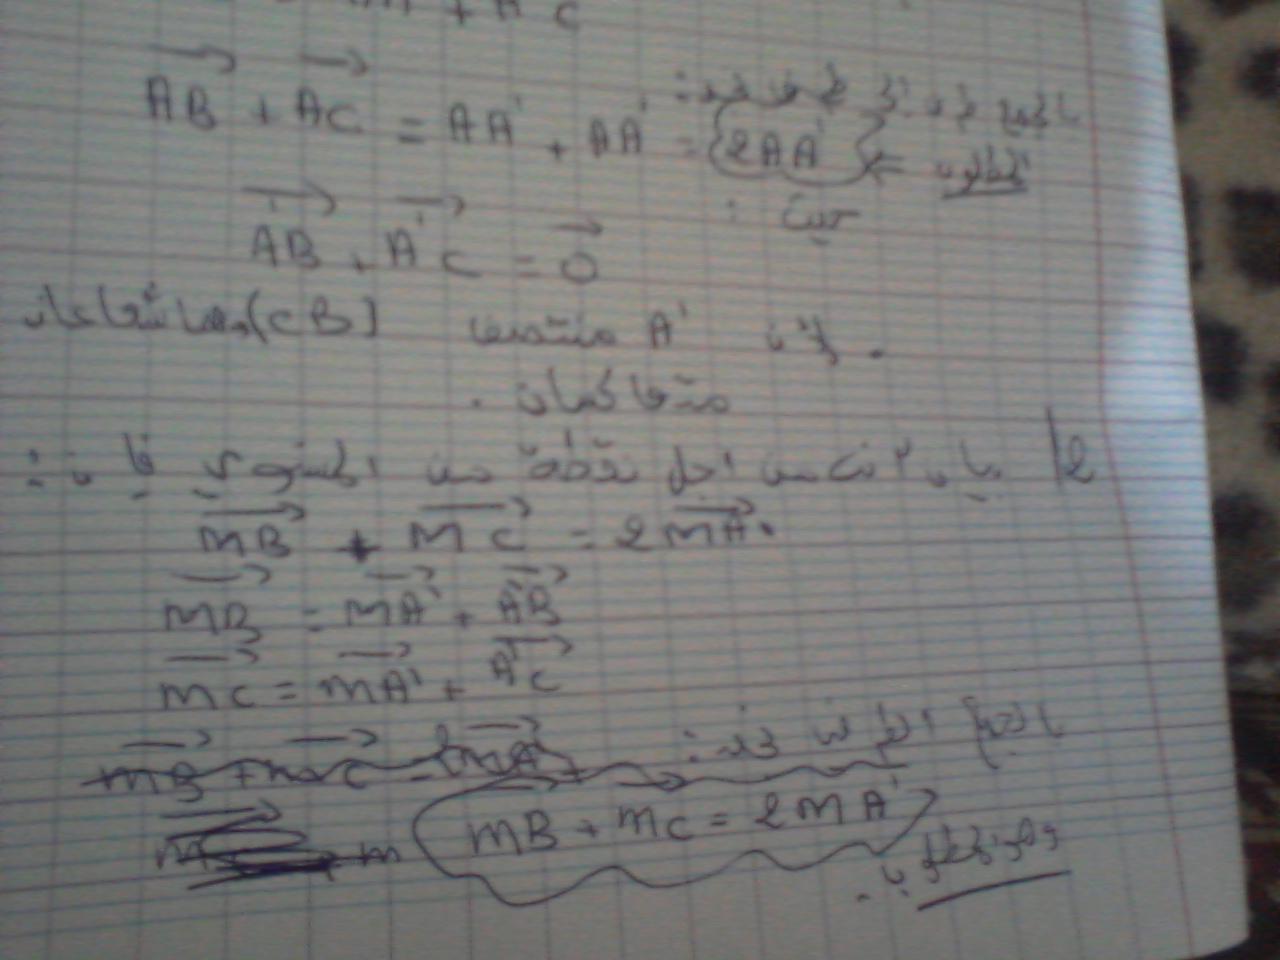 + A'C
AB + AC = AA' + AA' = {2AA'} ⇐ المطلوب بالجمع طرف إلى طرف نجد:
حيث :
A'B + A'C = 0
. لأن A' منتصف [CB] وهما شعاعان
متعاكسان .
2/ بيان أنه من أجل نقطة من المستوي فإن :
MB + MC = 2MA'
MB = MA' + A'B
MC = MA' + A'C
بالجمع نجد :
MB + MC = 2MA'
وهو المطلوب .